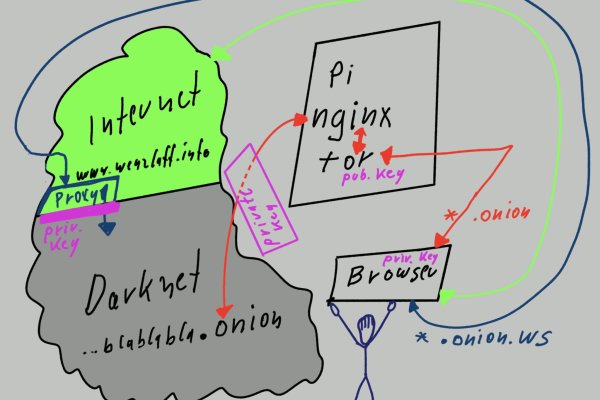 Internet
www.wenzlaff.info
Proxy
priv.
key
Darknet
...blablabla.onion
Private
key
Pi
nginx
tor
pub. key
*.onion
priv. key
Browser
*.onion.ws